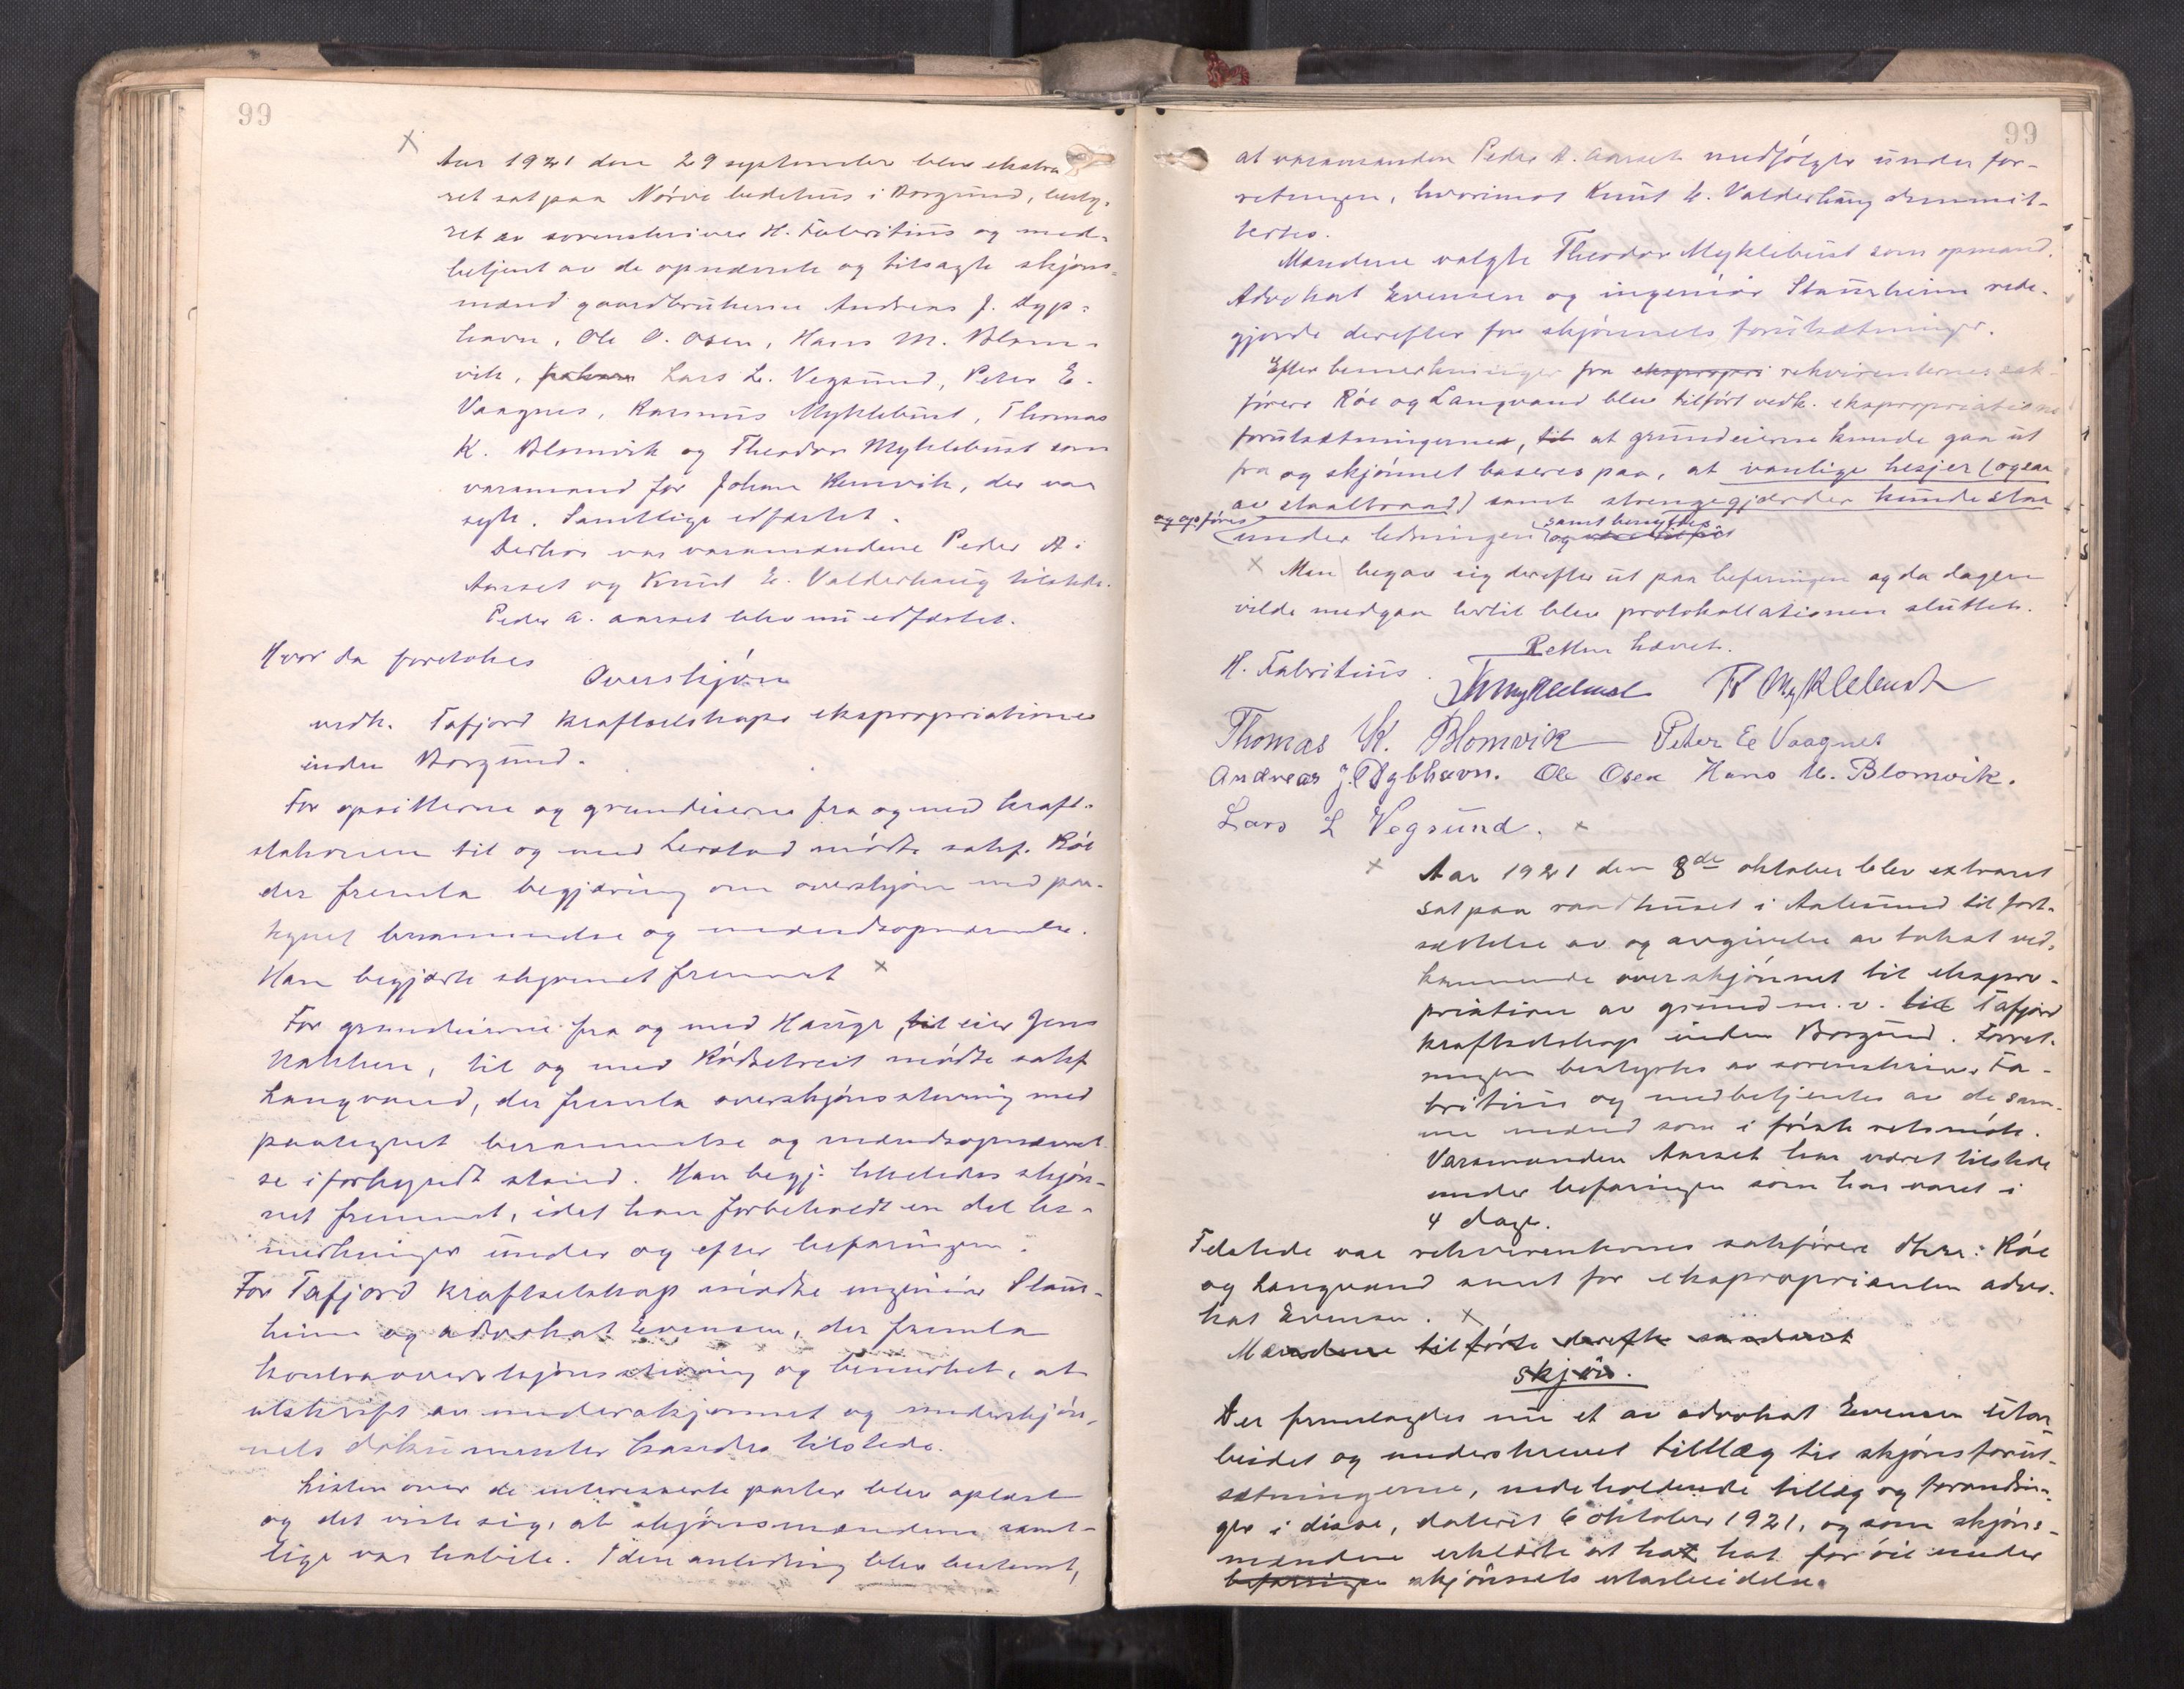 99
Aar 1921 den 29 september blev ekstra
ret sat paa Nørve bedehus i Borgund, besty-
ret av sorenskriver H. Fabritius og med-
betjent av de opnævnte og tilsagte skjøns-
mænd gaardbrukerne Andreas J. Dyp-
havn, Ole O. Osen, Hans M. Blom-
vik, Lars L. Vegsund, Peter E.
Vaagnes, Rasmus Myklebust, Thomas
K. Blomvik og Theodor Myklebust som
varamand for Johan Remvik, der var
syk. Samtlige edfæstet.
Derhos var varamændene Peder A.
Aarset og Knut E. Valderhaug tilstede.
Peder A. Aarset blev nu edfæstet.
Hvor da foretokes
Overskjøn
vedk. Tafjord kraftselskaps ekspropriationer
inden Borgund.
For opsitterne og grundeierne fra og med kraft-
stationen til og med Lerstad mødte sakf. Röe
der fremla begjæring om overskjøn med paa-
tegnet berammelse og mændsopnævnelse.
Han begjærte skjønnet fremmet x
For grundeierne fra og med Hauge, til eier Jens
Nakken, til og med Rødsetreit mødte sakf
Langvand, der fremla overskjønsstevning med
paategnet berammelse og mændsopnævnel
se i forkyndt stand. Han begj. likeledes skjøn-
net fremmet, idet han forbeholdt en del be-
merkninger under og efter befaringen.
For Tafjord kraftselskap mødte ingeniør Staur-
heim og advokat Evensen, der fremla
kontraoverskjønsstevning og bemerket, at
utskrift av underskjønnet og underskjøn-
nets dokumenter havdes tilstede.
Listen over de interesserte parter blev oplæst
og det viste sig, at skjønsmændene samt-
lige var habile. I den anledning blev bestemt,
99
at varamanden Peder A. Aarset medfølger under for-
retningen, hvorimot Knut E. Valderhaug demmit-
tertes.
Mændene valgte Theodor Myklebust som opmand.
Advokat Evensen og ingeniør Staurheim rede-
gjorde derefter for skjønnets forutsætninger.
Efter bemerkninger fra ekspropri rekvirenternes sak-
førere Röe og Langvand blev tilført vedk. ekspropriations
forutsætningerne, til at grundeierne kunde gaa ut
fra og skjønnet baseres paa, at vanlige hesjer (ogsaa
av staaltraad) samt strengegjærder kunde staa
og opføres under ledningen samt benyttes
x Man begav sig derefter ut paa befaringen og da dagen
vilde medgaa hertil blev protokollationen sluttet.
Retten hævet.
H. Fabritius. Th Myklebust R Myklebust
Thomas K. Blomvik Peter E Vaagnes
Andreas J. Dybhavn. Ole Osen Hans M. Blomvik.
Lars L Vegsund. x
x Aar 1921 den 8de oktober blev extraret
sat paa raadhuset i Aalesund til fort-
sættelse av og avgivelse av takst ved-
kommende overskjønnet til ekspro-
priation av grund m.v. til Tafjord
kraftselskap inden Borgund. Forret-
ningen bestyrtes av sorenskriver Fa-
britius og medbetjentes av de sam-
me mænd som i første retsmøte.
Varamanden Aarset har været tilstede
under befaringen som har varet i
4 dage.
Tilstede var rekvirenternes sakførere dhrr: Röe
og Langvand samt for ekspropianten advo-
kat Evensen. x
Mændene tilførte derefter saadant
skjøn.
Der fremlagdes nu et av advokat Evensen utar
beidet og underskrevet tillæg til skjønsforut-
sætningerne, indeholdende tillæg og forandrin-
ger i disse, dateret 6 oktober 1921, og som skjøns-
mændene erklærte at ha hat for öie under
befaringen skjønnets utarbeidelse.